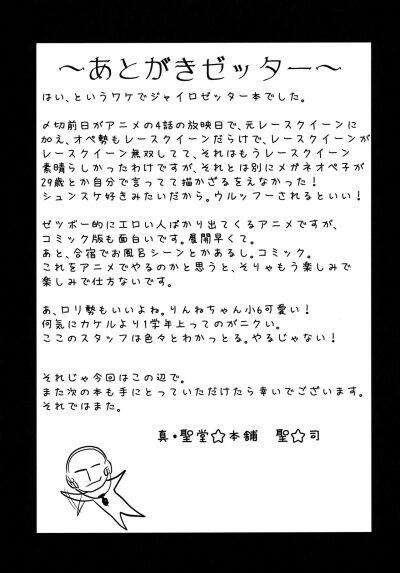 ～あとがきゼッター～
はい、というワケでジャイロゼッター本でした。
〆切前日がアニメの4話の放映日で、元レースクイーンに
加え、オペ勢もレースクイーンだらけで、レースクイーンが
レースクイーン無双してて、それはもうレースクイーン
素晴らしかったわけですが、それとは別にメガネオペ子が
29歳とか自分で言ってて描かざるをえなかった！
シュンスケ好きみたいだから。ウルッフーされるといい！
ゼツボー的にエロい人ばかり出てくるアニメですが、
コミック版も面白いです。展開早くて。
あと、合宿でお風呂シーンとかあるし。コミック。
これをアニメでやるのかと思うと、そりゃもう楽しみで
楽しみで仕方ないです。
あ、ロリ勢もいいよね。りんねちゃん小6可愛い！
何気にカケルより1学年上ってのがニクい。
ここのスタッフは色々とわかっとる。やるじゃない！
それじゃ今回はこの辺で。
また次の本も手にとっていただけたら幸いでございます。
それではまた。
真・聖堂☆本舗 聖☆司